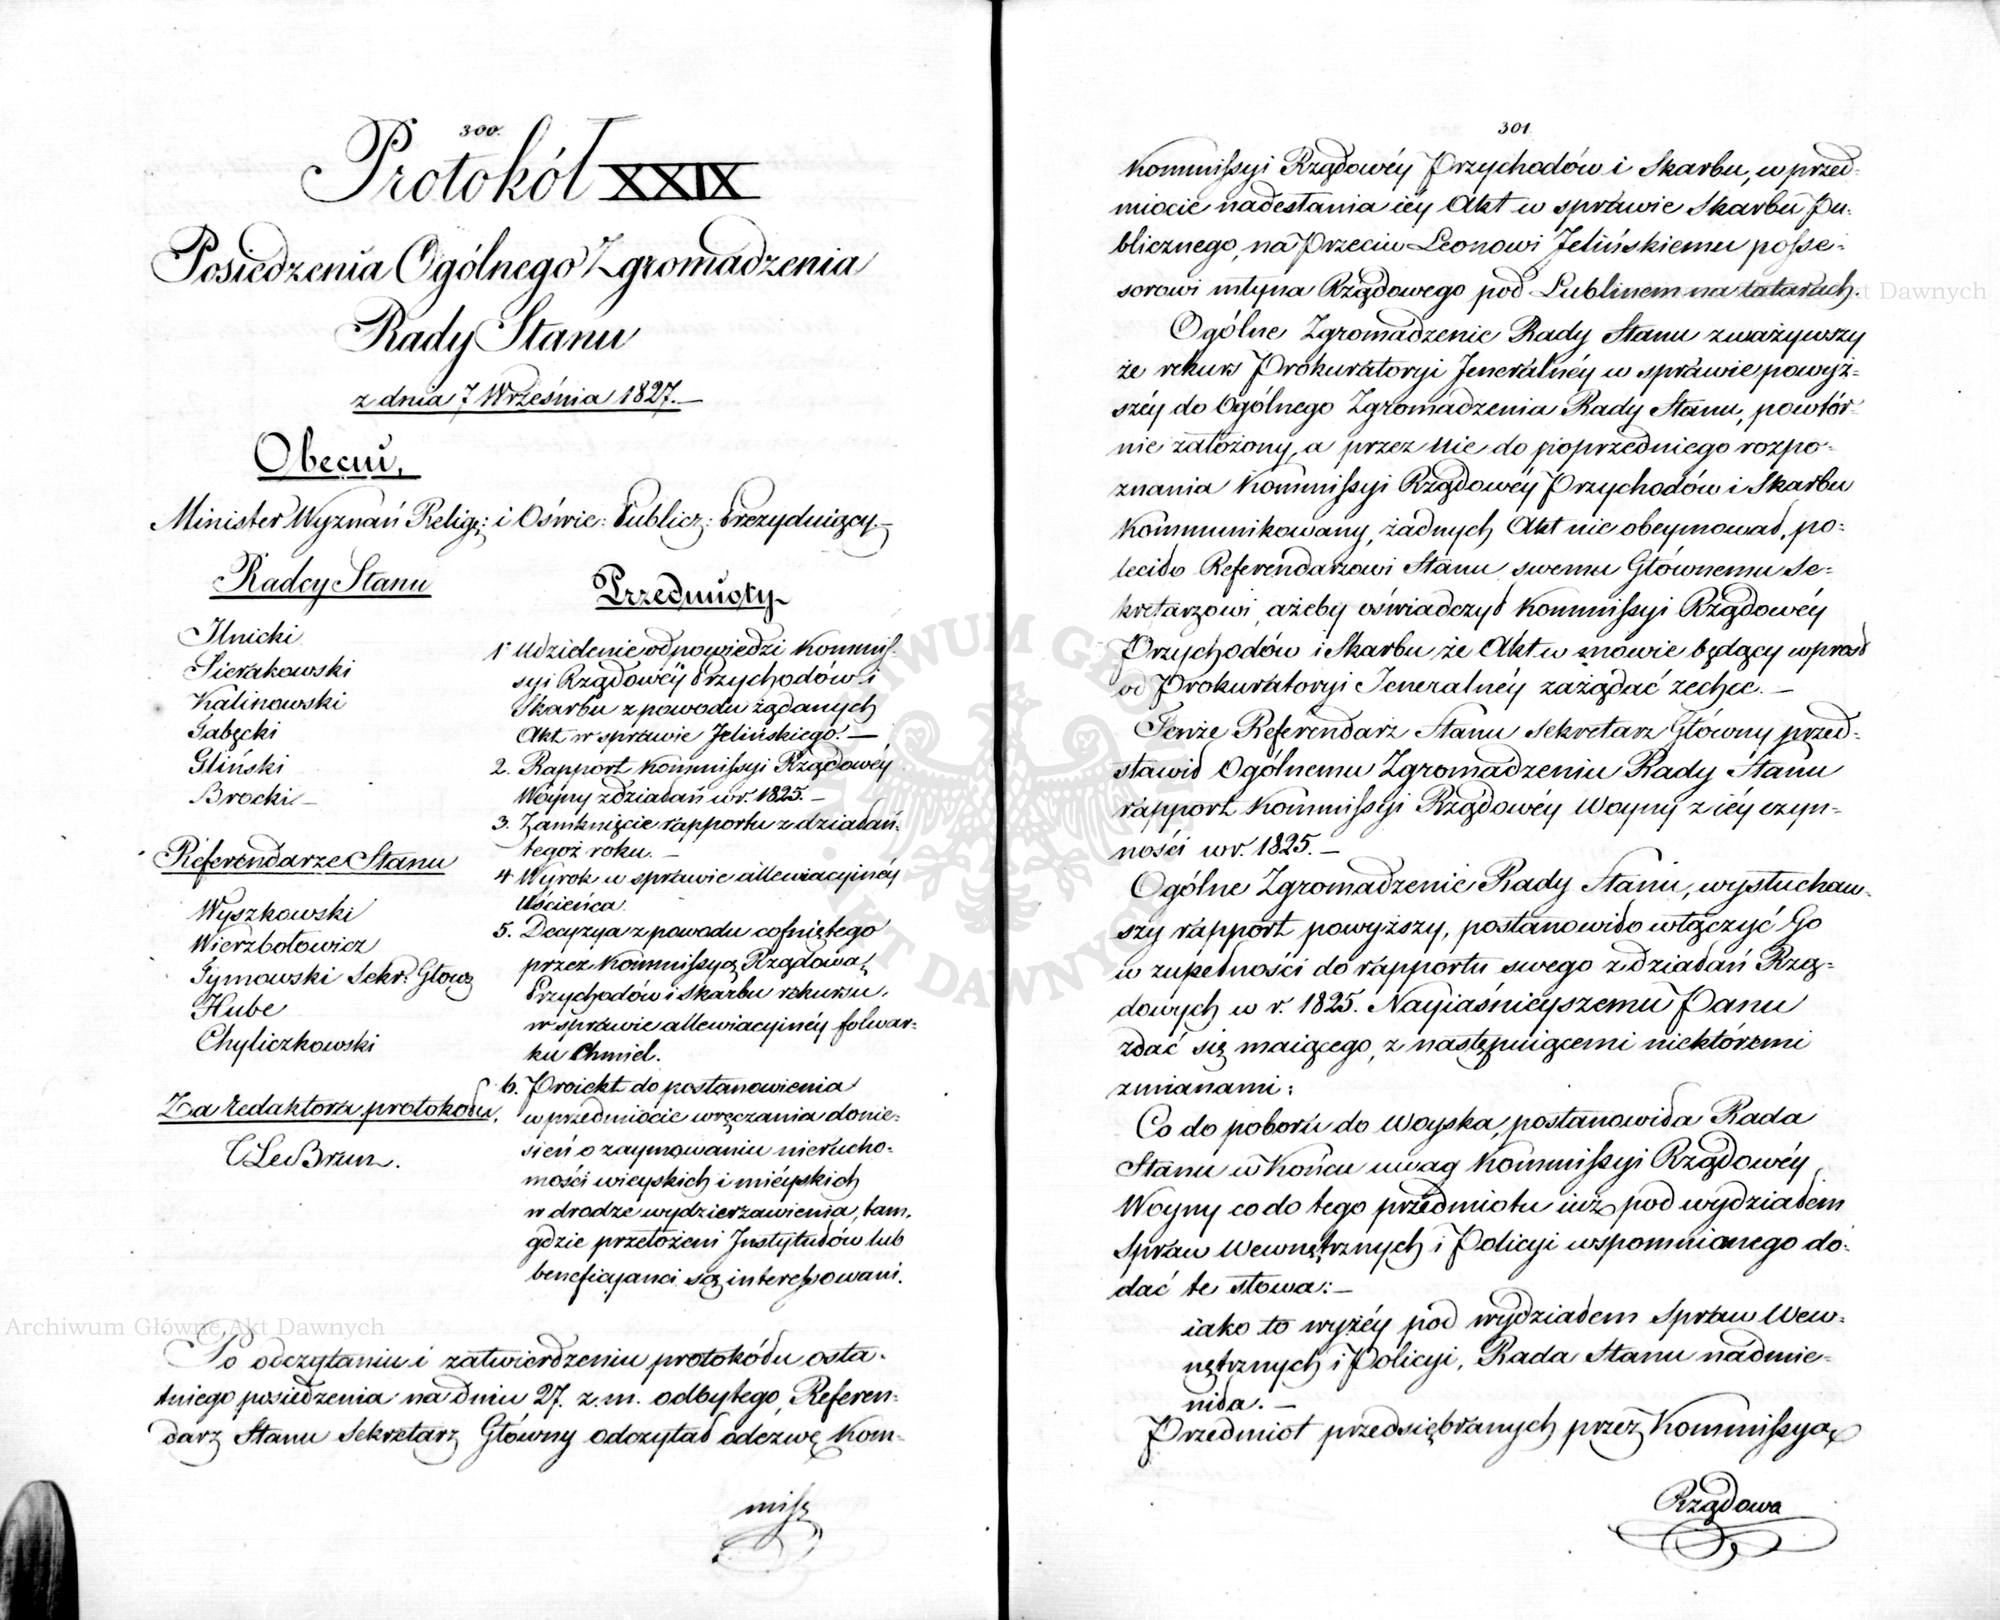 300.
Protokół XXIX
Posiedzenia Ogólnego Zgromadzenia
Rady Stanu
z dnia 7 Września 1827. —
Obecni,
Minister Wyznań Relig: i Oświe: Public: Prezyduiący.—
Radcy Stanu
Ilnicki
Sierakowski
Kalinowski
Gabęcki
Gliński
Brocki —
Referendarze Stanu
Wyszkowski
Wierzbołowicz
Tymowski Sekr: Głow:
Hube
Chyliczkowski
Za redaktora protokołu,
C LeBrun.
Przedmioty
1. Udzielenie odpowiedzi Kommis-
syi Rządowéy Przychodów i
Skarbu z powodu żądanych
Akt w sprawie Jelińskiego. —
2. Rapport Kommissyi Rządowéy
Woyny z działań w r. 1825. —
3. Zamknięcie rapportu z działań
tegoż roku. —
4 Wyrok w sprawie allewiacyinéy
Uścieńca.
5. Decyzya z powodu cofniętego
przez Kommissyą Rządową
Przychodów i Skarbu rekursu,
w sprawie allewiacyinéy folwar-
ku Chmiel.
6. Proiekt do postanowienia
w przedmiocie wręczania donie-
sień o zaymowaniu nierucho-
mości wieyskich i mieyskich
w drodze wydzierzawienia, tam,
gdzie przełożeni Instytutów lub
beneficyanci są interessowani.
Po odczytaniu i zatwierdzeniu protokółu osta-
tniego posiedzenia na dniu 27. z. m. odbytego, Referen-
darz Stanu Sekretarz Główny odczytał odezwę Kom-
missyi
301
Kommissyi Rządowéy Przychodów i Skarbu, w przed-
miocie nadesłania iéy Akt w sprawie Skarbu Pu-
blicznego, na Przeciw Leonowi Jelińskiemu posse-
sorowi młyna Rządowego pod Lublinem na tatarach.
Ogólne Zgromadzenie Rady Stanu zważywszy
że rekurs Prokuratoryi Jeneralnéy w sprawie powyż-
széy do Ogólnego Zgromadzenia Rady Stanu, powtór-
nie założony, a przez nie do poprzedniego rozpo-
znania Kommissyi Rządowéy Przychodów i Skarbu
kommunikowany, żadnych Akt nie obeymował, po-
leciło Referendarzowi Stanu swemu Głównemu Se-
kretarzowi, ażeby oświadczył Kommissyi Rządowéy
Przychodów i Skarbu że Akt w mowie będący wprost
od Prokuratoryi Jeneralnéy zażądać zechce. —
Tenże Referendarz Stanu Sekretarz Główny przed-
stawił Ogólnemu Zgromadzeniu Rady Stanu
rapport Kommissyi Rządowéy Woyny z iéy czyn-
ności w r. 1825. —
Ogólne Zgromadzenie Rady Stanu, wysłuchaw-
szy rapport powyższy, postanowiło włączyć Go
w zupełności do rapportu swego z działań Rzą-
dowych w r. 1825. Nayiaśnieyszemu Panu
zdać się maiącego, z następuiącemi niektóremi
zmianami:
Co do poboru do Woyska, postanowiła Rada
Stanu w końcu uwag Kommissyi Rządowéy
Woyny co do tego przedmiotu iuż pod wydziałem
Spraw Wewnętrznych i Policyi wspomnionego do-
dać te słowa: —
iako to wyżéy pod wydziałem Spraw Wew-
nętrznych i Policyi, Rada Stanu nadmie-
niła. —
Przedmiot przedsiębranych przez Kommissyą
Rządowa
Archiwum Główne Akt Dawnych
ARCHIWUM GŁÓWNE AKT DAWNYCH